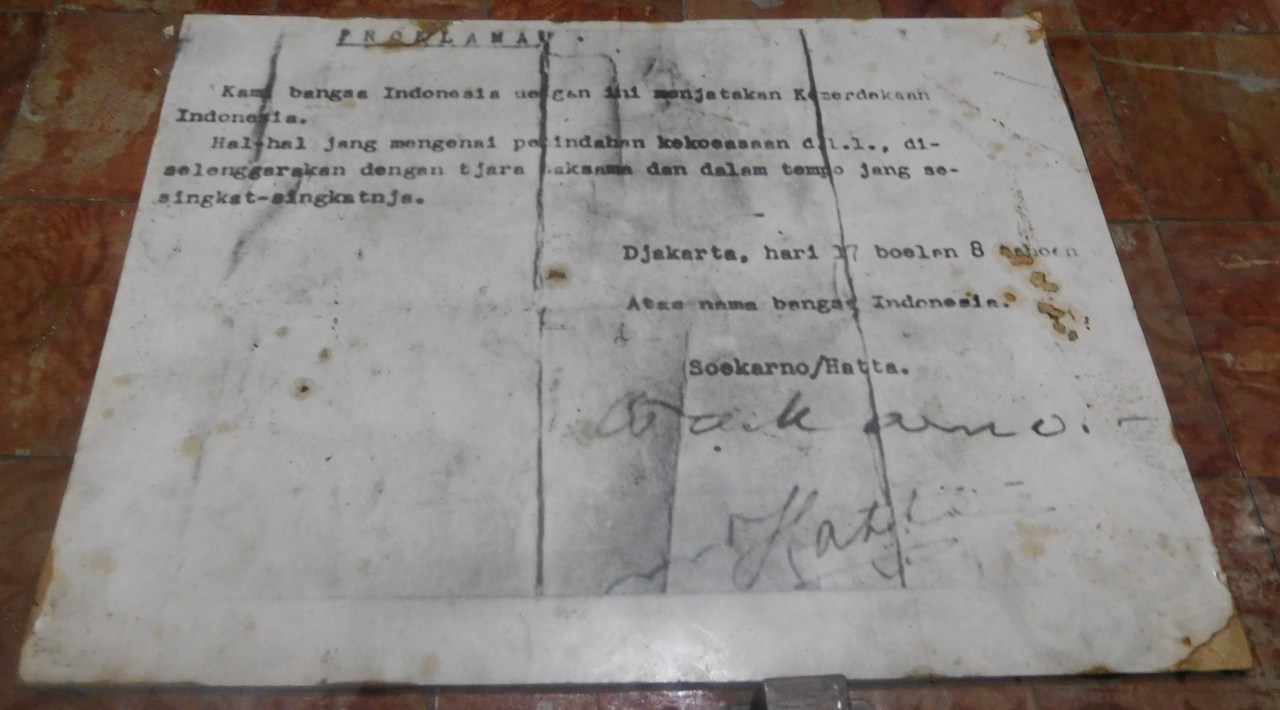 PROKLAMASI.
Kami bangsa Indonesia dengan ini menjatakan Kemerdekaan
Indonesia.
Hal-hal jang mengenai pemindahan kekoeasaan d.l.l., di-
selenggarakan dengan tjara saksama dan dalam tempo jang se-
singkat-singkatnja.
Djakarta, hari 17 boelan 8 tahoen
Atas nama bangsa Indonesia.
Soekarno/Hatta.
Soekarno.-
Hatta